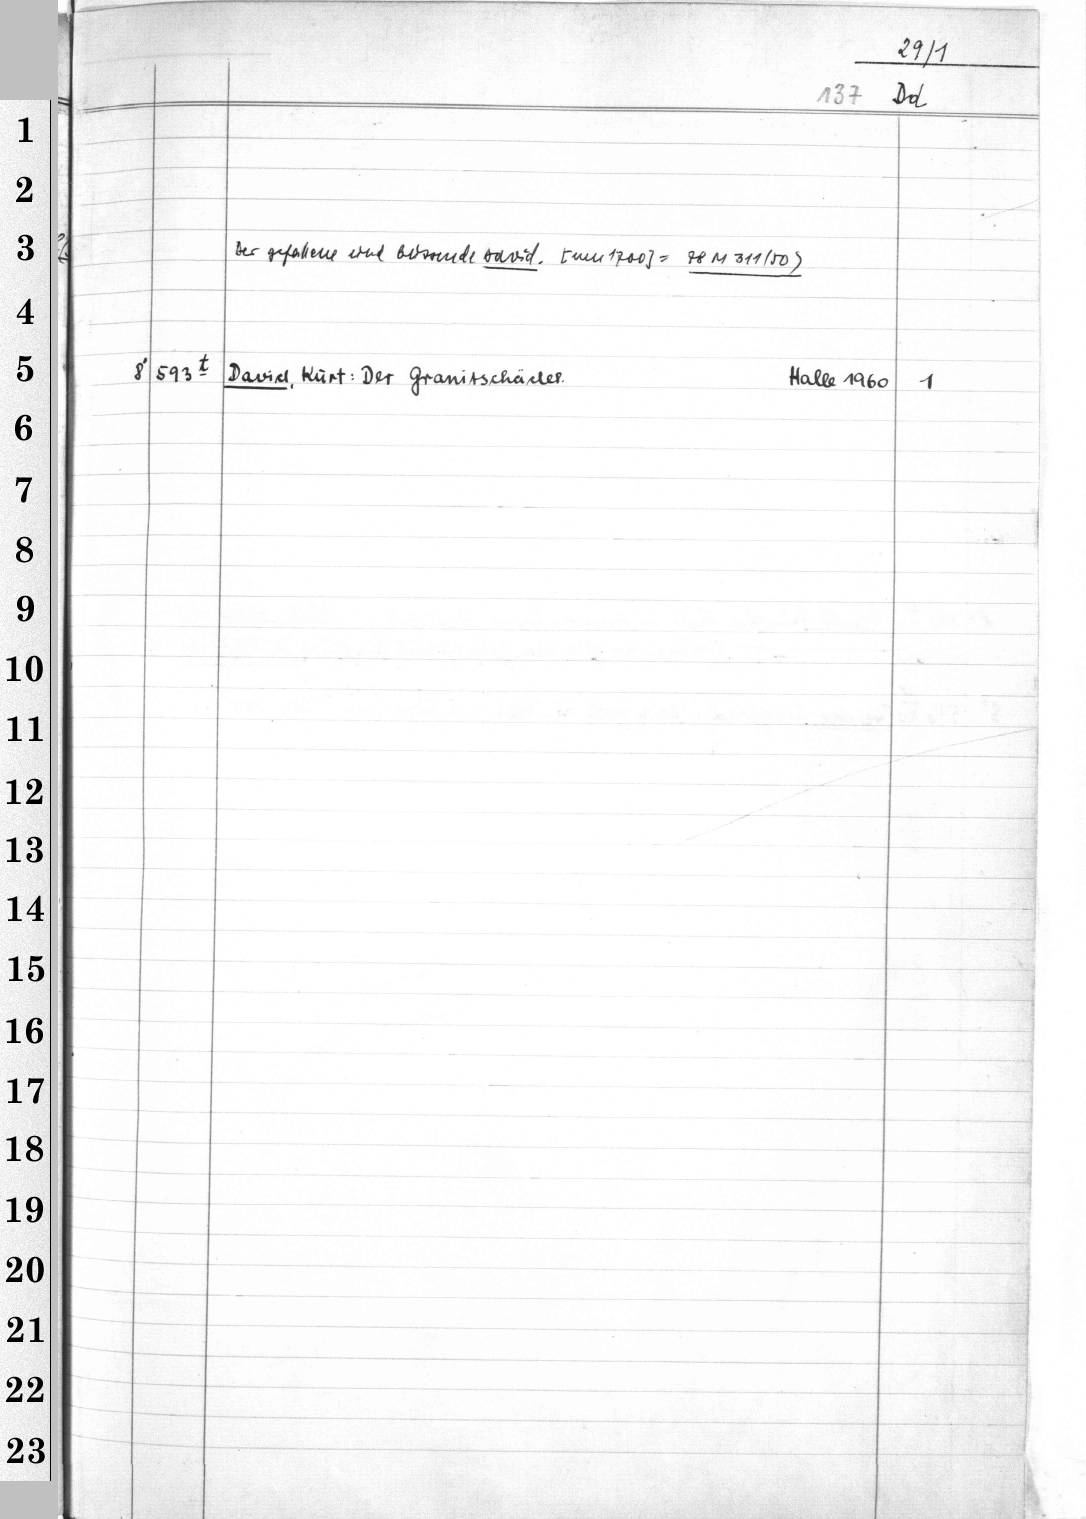 29/1
137 Dd
1
2
3 Der gefallene und büssende David. [um 1700] = 78 M 311(50)
4
5 8° 593 t David, Kurt: Der Granitschädel. Halle 1960 1
6
7
8
9
10
11
12
13
14
15
16
17
18
19
20
21
22
23